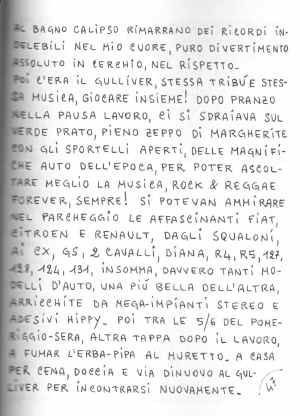 AL BAGNO CALIPSO RIMARRANO DEI RICORDI IN-
DELEBILI NEL MIO CUORE, PURO DIVERTIMENTO
ASSOLUTO IN CERCHIO, NEL RISPETTO.
POI C'ERA IL GULLIVER, STESSA TRIBÚ E STES-
SA MUSICA, GIOCARE INSIEME! DOPO PRANZO
NELLA PAUSA LAVORO, CI SI SDRAIAVA SUL
VERDE PRATO, PIENO ZEPPO DI MARGHERITE
CON GLI SPORTELLI APERTI, DELLE MAGNIFI-
CHE AUTO DELL'EPOCA, PER POTER ASCOL-
TARE MEGLIO LA MUSICA, ROCK & REGGAE
FOREVER, SEMPRE! SI POTEVAN AMMIRARE
NEL PARCHEGGIO LE AFFASCINANTI FIAT,
CITROEN E RENAULT, DAGLI SQUALONI,
AI CX, GS, 2 CAVALLI, DIANA, R4, R5, 127,
128, 124, 131, INSOMMA, DAVVERO TANTI MO-
DELLI D'AUTO, UNA PIÚ BELLA DELL'ALTRA,
ARRICCHITE DA MEGA-IMPIANTI STEREO E
ADESIVI HIPPY. POI TRA LE 5/6 DEL POME-
RIGGIO-SERA, ALTRA TAPPA DOPO IL LAVORO,
A FUMAR L'ERBA-PIPA AL MURETTO. A CASA
PER CENA, DOCCIA E VIA DINUOVO AL GUL-
LIVER PER INCONTRARSI NUOVAMENTE.